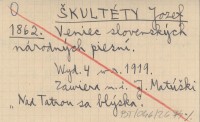 ŠKULTÉTY Jozef
1862. Veniec slovenských
národných piesní.
Wyd. 4 w r. 1919.
Zawiera m.i. J. Matúški
„Nad Tatrou sa blýska".